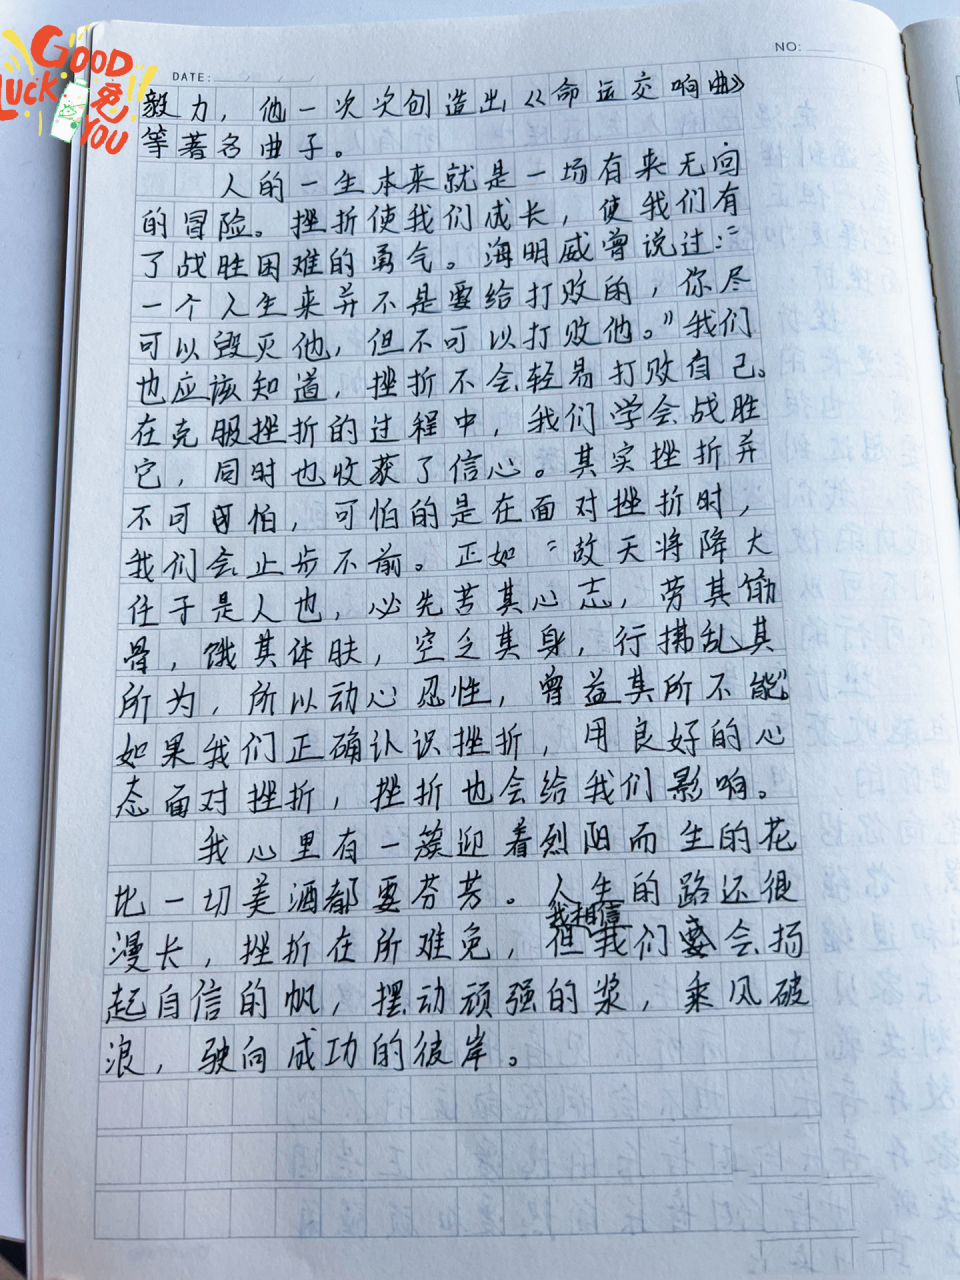 GOOD
LUCK
YOU
NO:
DATE:
毅力，他一次次创造出《命运交响曲》
等著名曲子。
人的一生本来就是一场有来无回
的冒险。挫折使我们成长，使我们有
了战胜困难的勇气。海明威曾说过：“
一个人生来并不是要给打败的，你尽
可以毁灭他，但不可以打败他。”我们
也应该知道，挫折不会轻易打败自己。
在克服挫折的过程中，我们学会战胜
它，同时也收获了信心。其实挫折并
不可怕，可怕的是在面对挫折时，
我们会止步不前。正如“故天将降大
任于是人也，必先苦其心志，劳其筋
骨，饿其体肤，空乏其身，行拂乱其
所为，所以动心忍性，曾益其所不能”
如果我们正确认识挫折，用良好的心
态面对挫折，挫折也会给我们影响。
我心里有一簇迎着烈阳而生的花
比一切美酒都要芬芳。人生的路还很
漫长，挫折在所难免，但我相信我们会扬
起自信的帆，摆动顽强的浆，乘风破
浪，驶向成功的彼岸。